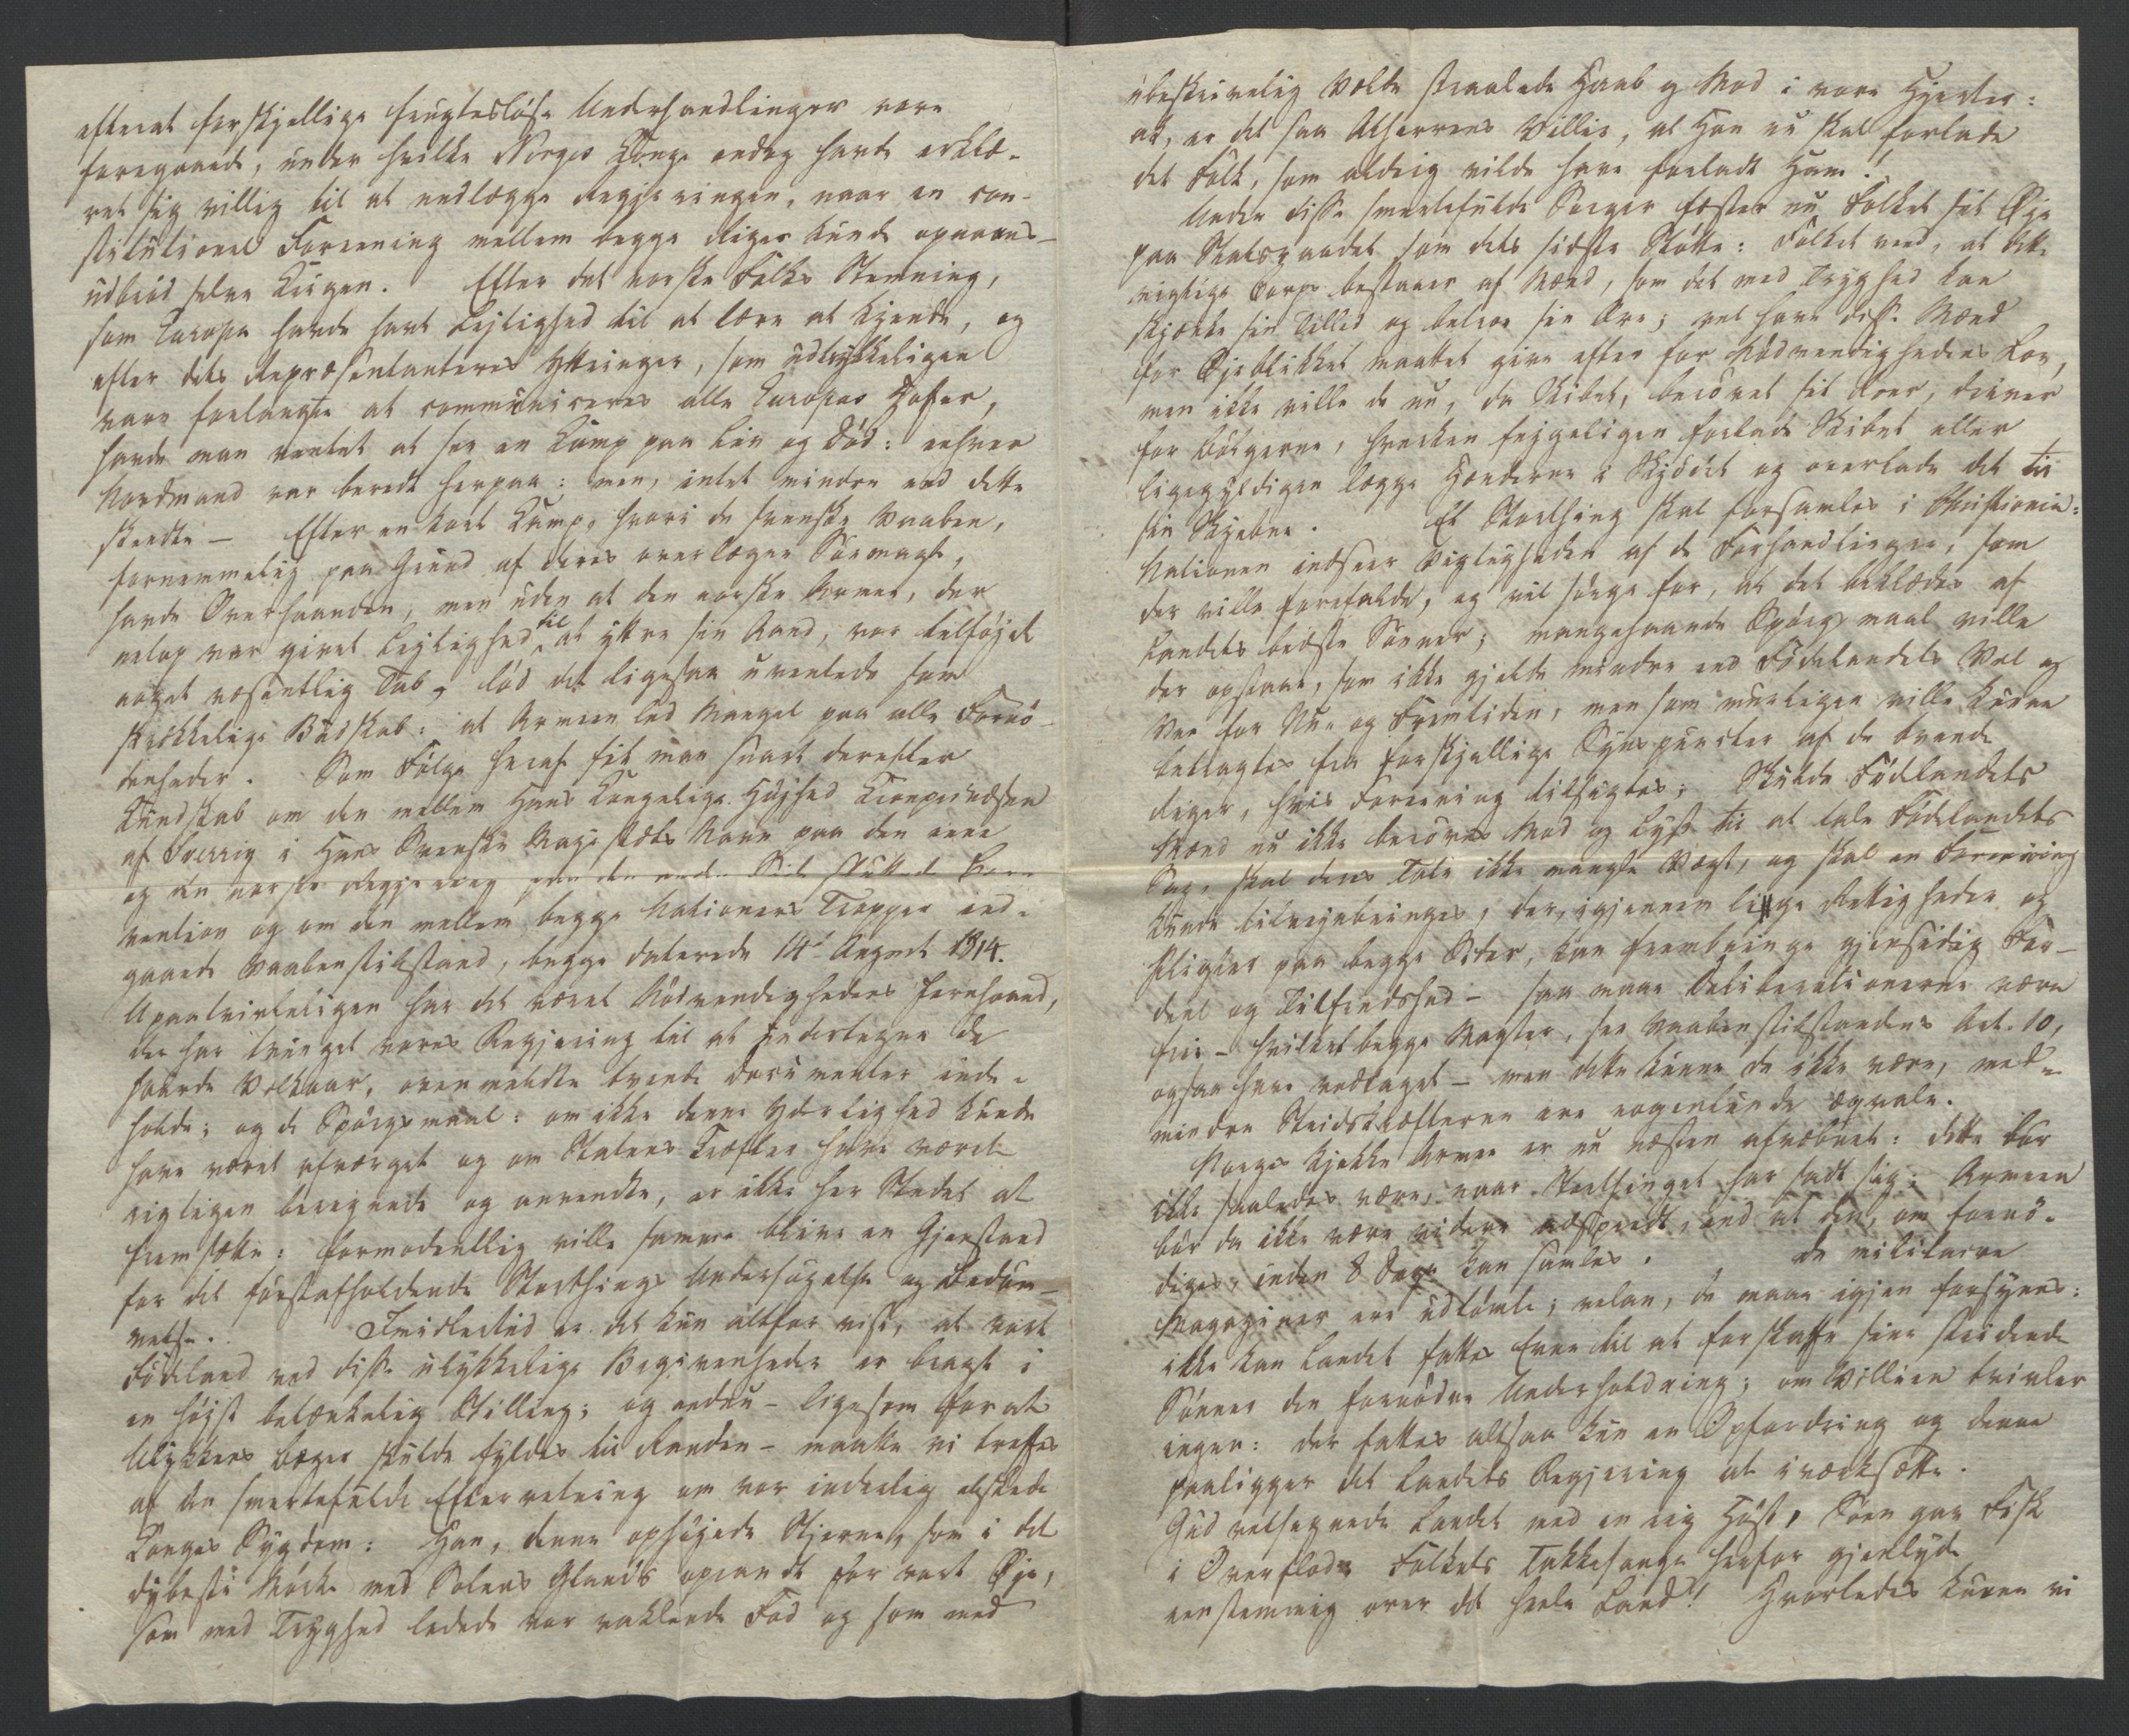 efterat forskjellige frugtesløse Underhandlinger vare
foregaaede, under hvilke Norges Konge endog havde erklæ-
ret sig villig til at nedlægge Regjeringen, naar en con-
stitutionel Forening mellem begge Riger kunde opnaaes –
udbrød selve Krigen. Efter det norske Folks Stemning,
som Europa havde havt Lejlighed til at lære at kjende, og
efter dets Repræsentanteres Yttringer, som udtrykkeligen
vare forlangte at communiceres alle Europas Hoffer,
havde man ventet at see en Kamp paa Liv og Død: enhver
Nordmand var beredt herpaa: men, intet mindre end dette
skeedte – Efter en kort Kamp, hvori de svenske Vaaben,
fornemmelig paa Grund af deres overlægne Søemagt,
havde Overhaanden, men uden at den norske Armee, der
netop var givet Lejlighed til at yttre sin Aand, var tilføjet
noget væsentlig Tab, lød det ligesaa uventede som
skrækkelige Budskab: at Armeen led Mangel paa alle Fornø-
denheder. Som Følge heraf fik man snart derefter
Kundskab om den mellem Hans Kongelige Højhed Kronprindsen
af Sverrig i Hans Svenske Majestæts Navn paa den ene
og den norske Regjering paa den anden Side sluttede Con-
vention og om den mellem begge Nationers Tropper ind-
gaaede Vaabenstilstand, begge daterede 14de August 1814.
Upaatvivleligen har det været Nødvendighedens Jernhaand,
der har tvunget vores Regjering til at undertegne de
haarde Vilkaar, ovenmeldte tvende Documenter inde-
holde; og de Spørgsmaal: om ikke denne Yderlighed kunde
have været afværget og om Statens Kræfter have været
rigtigen beregnede og anvendte, er ikke her Stedet at
fremsætte: formodentlig ville samme blive en Gjenstand
for det førstafholdende Storthings Undersøgelse og Bedøm-
melse. Imidlertid er det kun altfor vist, at vort
Fødeland ved disse ulykkelige Begivenheder er bragt i
en højst betænkelig Stilling; og endnu – ligesom for at
Ulykkens Bæger skulde fyldes til Randen – maatte vi treffes
af den smertefulde Efterretning om vor inderlig elskede
Konges Sygdom: Han, denne ophøjede Stjerne, som i det
dybeste Mørke med Solens Glands oprandt for vort Øje,
som med Tryghed ledede vor vaklende Fod og som med
ubeskrivelig Vælde straalede Haab og Mod i vore Hjerter:
ak, er det saa Alherrens Villie, at Han nu skal forlade
det Folk, som aldrig vilde have forladt Ham!
Under disse smertefulde Sorger fæster nu Folket sit Øje
paa Statsraadet som dets sidste Støtte: Folket veed, at dette
vigtige Corps bestaaer af Mænd, som det med Tryghed kan
skjænke sin Tillid og betroe sin Ære; vel have disse Mænd
for Øjeblikket maattet give efter for Nødvendighedens Lov,
men ikke ville de nu, da Skibet, berøvet sit Roer, driver
for Bølgerne, hverken fejgeligen forlade Skibet eller
ligegyldigen lægge Hænderne i Skjødet og overlade det til
sin Skjebne. Et Storthing skal forsamles i Christiania:
Nationen indseer Vigtigheden af de Forhandlinger, som
der ville forefalde, og vil sørge for, at det beklædes af
Landets bedste Sønner; mangehaande Spørgsmaal ville
der opstaae, som ikke gjelde mindre end Fødelandets Vel og
Vee for Nu- og Fremtiden, men som muligen ville kunne
betragtes fra forskjellige Synspuncter af de tvende
Riger, hvis Forening tilsigtes; Skulde Fødlandets
Mænd nu ikke berøves Mod og Lyst til at tale Fødelandets
Sag, skal deres Tale ikke mangle Vægt, og skal en Forening
kunde tilvejebringes, der, igjennem lige Rettigheder og
Pligter paa begge Sider, kan frembringe gjensidig For-
deel og Tilfredshed – saa maae Deliberationerne være
frie – hvilket begge Magter, see Vaabenstilstandens Art. 10,
ogsaa have vedtaget – men dette kunne de ikke være, med-
mindre Stridskræfterne ere nogenlunde æqvale.
Norges kjekke Armee er nu næsten afvæbnet: dette bør
ikke saaledes være, naar Storthinget har sadt sig: Armeen
bør da ikke være videre adspredt, end at den, om fornø-
diges, inden 8 Dage kan samles. de militaire
Magaziner ere udtømte; velan, de maae igjen forsynes:
ikke kan Landet fattes Evne til at forskaffe sine stridende
Sønner den fornødne Underholdning; om Villien tvivler
ingen: der fattes altsaa kun en Opfordring og denne
paaligger det Landets Regjering at iværksætte.
Gud velsignede Landet med en rig Høst, Søen gav Fisk
i Overflod. Folkets Takkesange herfor gjenlyde
eenstemmig over det heele Land! Hvorledes kunne vi